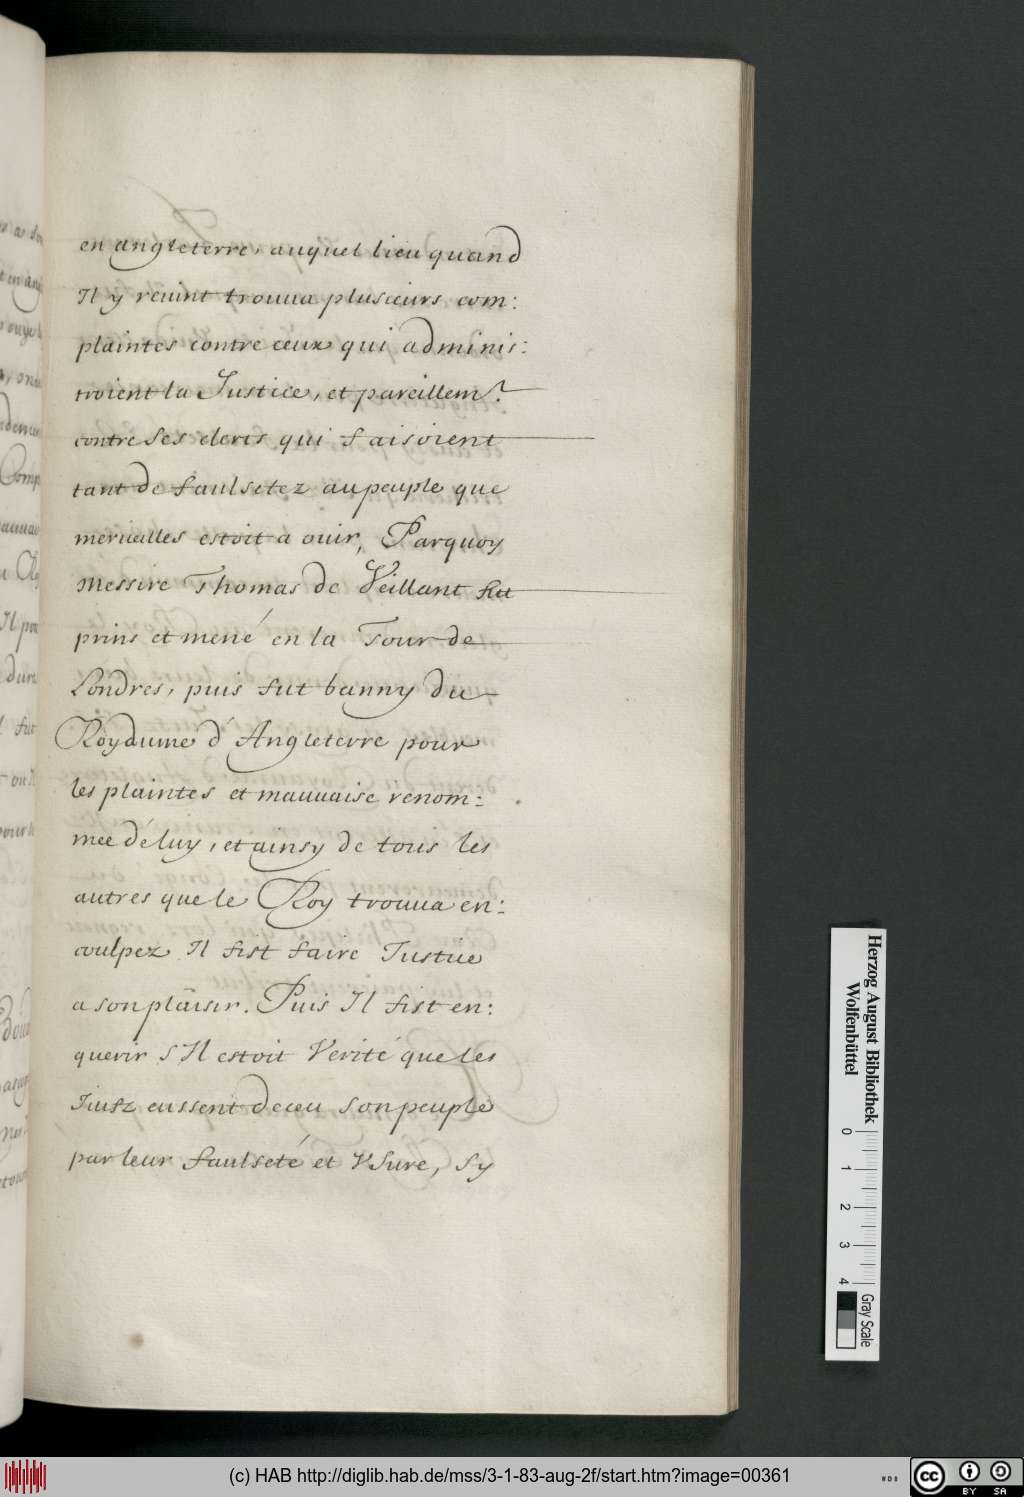 en angleterre, auquel lieu quand
Il y revint trouua plusieurs com:
plaintes contre ceux qui adminis:
troient la Justice, et pareillem.t
contre Ses clercs qui faisoient
tant de faulsetez au peuple que
merueilles estoit a ouir, Parquoy
Messire Thomas de Veillant fut
prins et mené en la Tour de
Londres, puis fut banny du
Royaume d'Angleterre pour
les plaintes et mauuaise renom=
mee de luy, et ainsy de tous les
autres que le Roy trouua en:
coulpez Il fist faire Justice
a son plaisir. Puis Il fist en:
querir S'Il estoit Verité que les
Juifz eussent deceu Son peuple
par leur faulseté et VSure, Sy
Herzog August Bibliothek
Wolfenbüttel
0 1 2 3 4
Gray Scale
(c) HAB http://diglib.hab.de/mss/3-1-83-aug-2f/start.htm?image=00361
WDB
cc BY SA